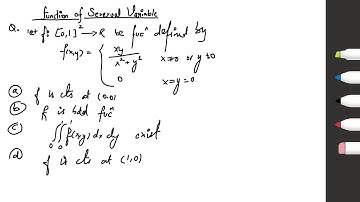 Function of Several Variable
Q. Let f: [0,1]² → R be funcⁿ defined by
f(x,y) = { xy / (x² + y²)   x≠0 or y≠0
0   x=y=0
(a) f is cts at (0,0)
(b) f is bdd funcⁿ
(c) ∫₀¹∫₀¹ f(x,y) dx dy exist
(d) f is cts at (1,0)